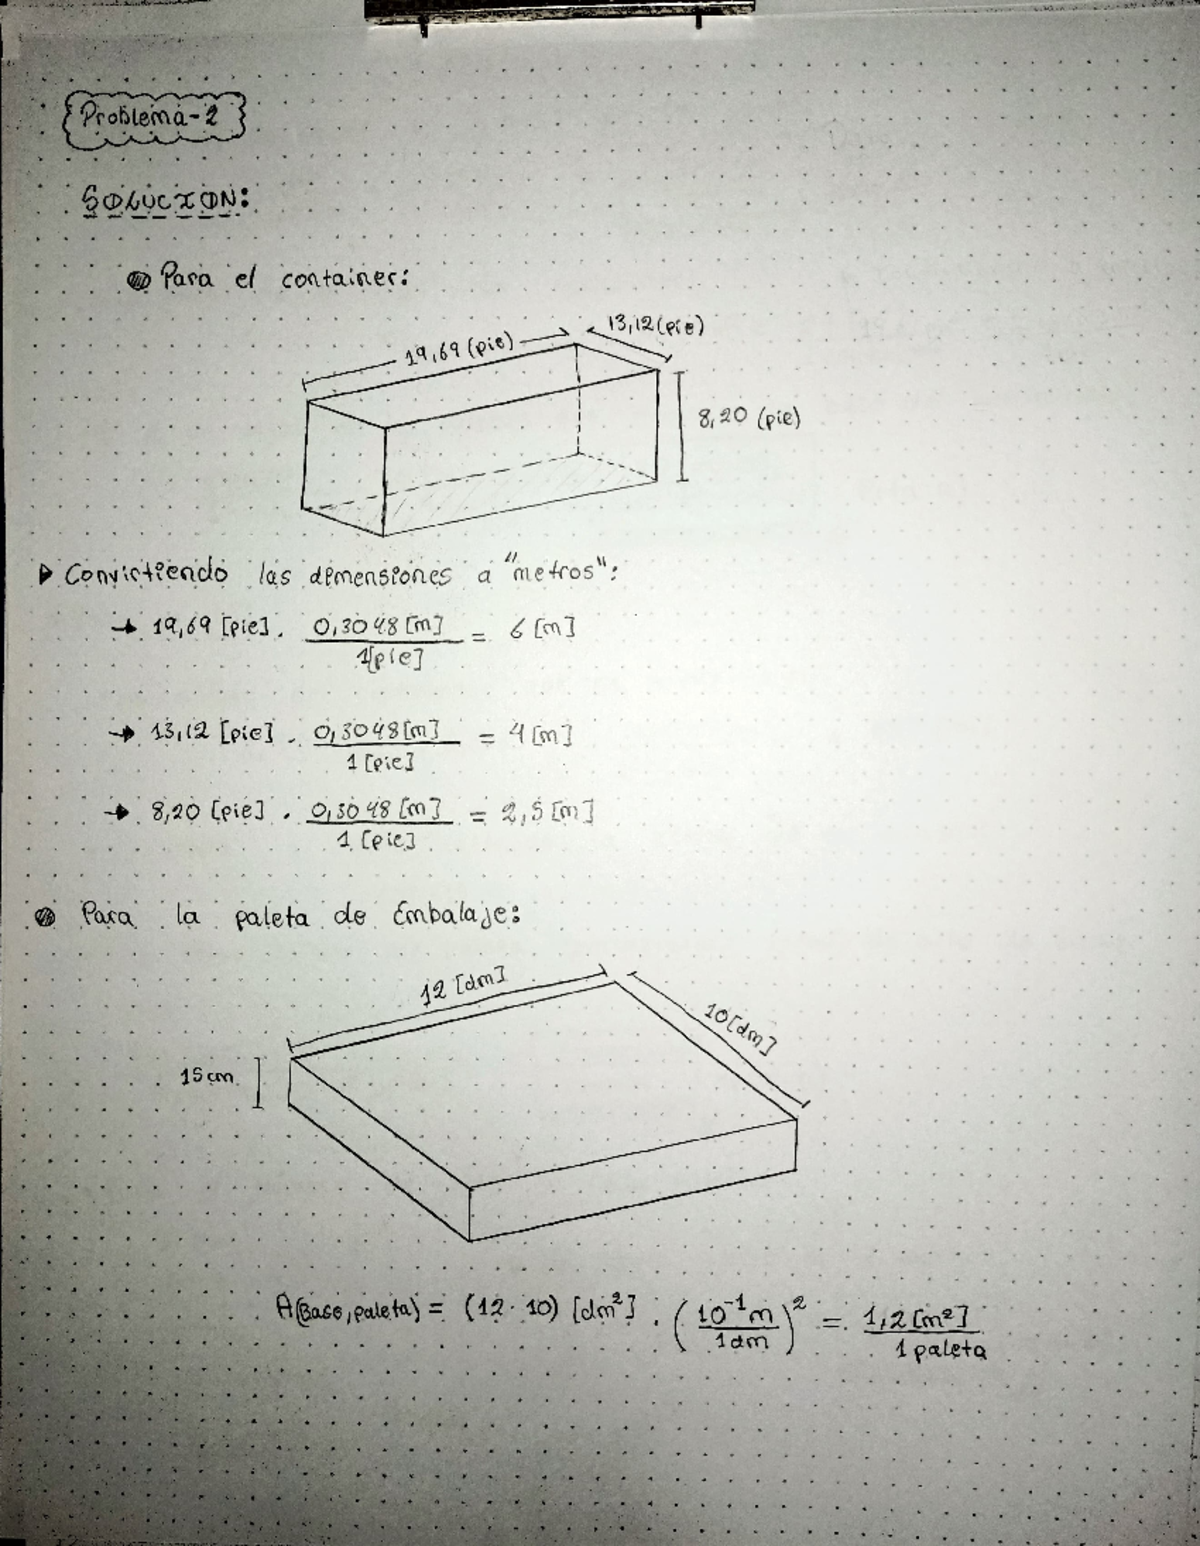 Problema-2
SOLUCION:
Para el container:
19,69 (pie)
13,12 (pie)
8,20 (pie)
Convirtiendo las dimensiones a "metros":
→ 19,69 [pie] . 0,3048 [m] / 1[pie] = 6 [m]
→ 13,12 [pie] . 0,3048[m] / 1 [pie] = 4 [m]
→ 8,20 [pie] . 0,3048 [m] / 1 [pie] = 2,5 [m]
Para la paleta de Embalaje:
12 [dm]
10 [dm]
15 cm
A(Base, paleta) = (12 · 10) [dm²] . (10⁻¹m / 1dm)² = 1,2 [m²] / 1 paleta